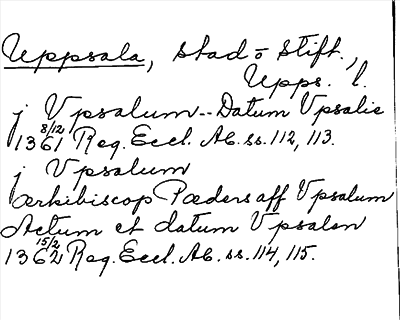 Uppsala, stad o stift.,
Upps. l.
j Vpsalum -- Datum Vpsalie
1361 8/12 Reg. Eccl. Ab. ss. 112, 113.
j Vpsalum
ærkibiscop Pæders aff Vpsalum
Actum et datum Vpsalen
1362 15/2 Reg. Eccl. Ab. ss. 114, 115.